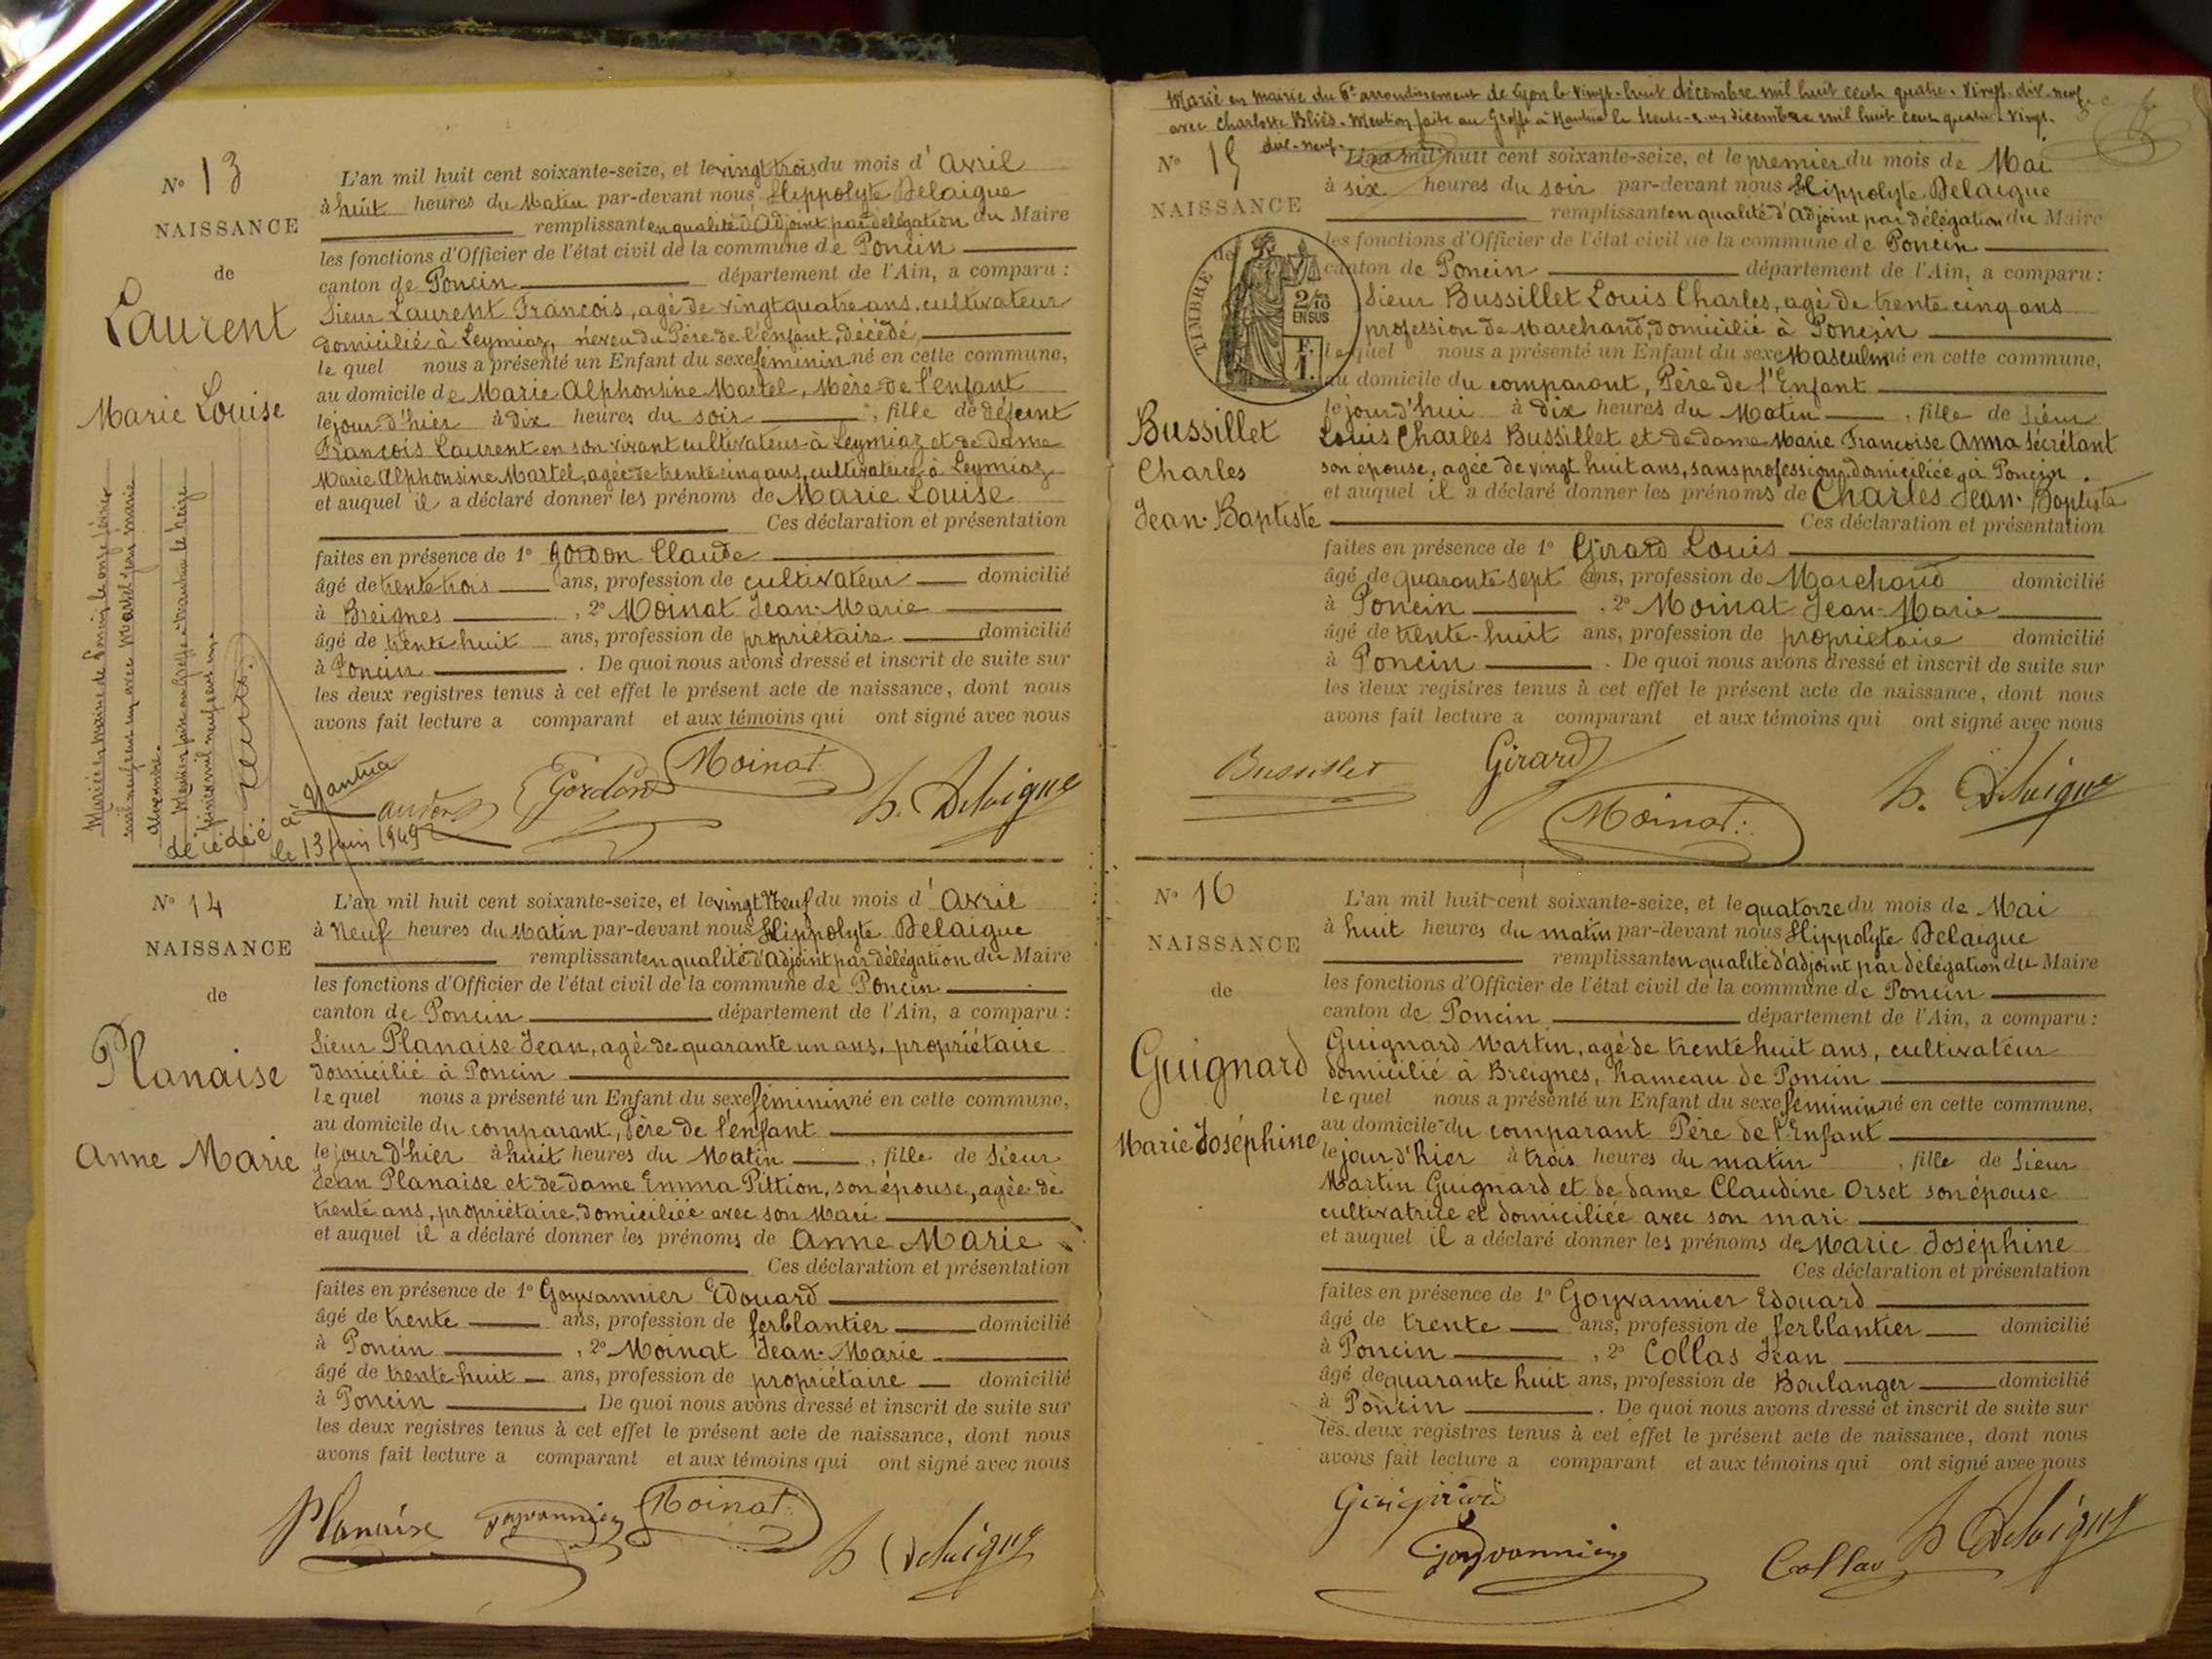 N° 13
NAISSANCE
de
Laurent
Marie Louise
L'an mil huit cent soixante-seize, et le vingt trois du mois d'Avril
à huit heures du Matin par-devant nous Hippolyte Delaigue
remplissant en qualité d'Adjoint par délégation du Maire
les fonctions d'Officier de l'état civil de la commune de Poncin
canton de Poncin département de l'Ain, a comparu :
Sieur Laurent François, agé de vingt quatre ans, cultivateur
domicilié à Leymiaz, neveu du Père de l'enfant, décédé,
le quel nous a présenté un Enfant du sexe féminin né en cette commune,
au domicile de Marie Alphonsine Martel, Mère de l'enfant
le jour d'hier à dix heures du soir , fille de défunt
François Laurent en son vivant cultivateur à Leymiaz et de dame
Marie Alphonsine Martel, agée de trente cinq ans, cultivatrice, à Leymiaz
et auquel il a déclaré donner les prénoms de Marie Louise
Ces déclaration et présentation
faites en présence de 1° Gordon Claude
âgé de trente trois ans, profession de cultivateur domicilié
à Breignes , 2° Moinat Jean-Marie
âgé de trente huit ans, profession de propriétaire domicilié
à Poncin . De quoi nous avons dressé et inscrit de suite sur
les deux registres tenus à cet effet le présent acte de naissance, dont nous
avons fait lecture a comparant et aux témoins qui ont signé avec nous
Mariée en mairie de Poncin le onze février
mil neuf cent un avec Martel Jean Marie
décédée à Nantua
le 13 Juin 1949
Gordon Moinat h. Delaigue
N° 14
NAISSANCE
de
Planaise
Anne Marie
L'an mil huit cent soixante-seize, et le vingt Neuf du mois d'Avril
à Neuf heures du Matin par-devant nous Hippolyte Delaigue
remplissant en qualité d'Adjoint par délégation du Maire
les fonctions d'Officier de l'état civil de la commune de Poncin
canton de Poncin département de l'Ain, a comparu :
Sieur Planaise Jean, agé de quarante un ans, propriétaire
domicilié à Poncin
le quel nous a présenté un Enfant du sexe féminin né en cette commune,
au domicile du comparant, Père de l'enfant
le jour d'hier à huit heures du Matin , fille de Sieur
Jean Planaise et de dame Emma Pittion, son épouse, agée de
trente ans, propriétaire, domiciliée avec son Mari
et auquel il a déclaré donner les prénoms de Anne Marie
Ces déclaration et présentation
faites en présence de 1° Goyvannier Edouard
âgé de trente ans, profession de ferblantier domicilié
à Poncin , 2° Moinat Jean-Marie
âgé de trente-huit ans, profession de propriétaire domicilié
à Poncin . De quoi nous avons dressé et inscrit de suite sur
les deux registres tenus à cet effet le présent acte de naissance, dont nous
avons fait lecture a comparant et aux témoins qui ont signé avec nous
Planaise Goyvannier Moinat h Delaigue
Marié en mairie du 6e arrondissement de Lyon le vingt-huit décembre mil huit cent quatre-vingt-dix-neuf
avec Charlotte Bliès. Mention faite au Greffe à Nantua le trente-un décembre mil huit cent quatre-vingt-
dix-neuf.
N° 15
NAISSANCE
de
TIMBRE
2/10
EN SUS
F.
1.
Bussillet
Charles
Jean-Baptiste
L'an mil huit cent soixante-seize, et le premier du mois de Mai
à six heures du soir par-devant nous Hippolyte Delaigue
remplissant en qualité d'Adjoint par délégation du Maire
les fonctions d'Officier de l'état civil de la commune de Poncin
canton de Poncin département de l'Ain, a comparu :
Sieur Bussillet Louis Charles, agé de trente cinq ans
profession de Marchand, domicilié à Poncin
lequel nous a présenté un Enfant du sexe Masculin né en cette commune,
au domicile du comparant, Père de l'Enfant
le jourd'hui à dix heures du Matin , fille de Sieur
Louis Charles Bussillet et de dame Marie Françoise Anna Sécrétant
son épouse, agée de vingt huit ans, sans profession, domiciliée, à Poncin.
et auquel il a déclaré donner les prénoms de Charles Jean-Baptiste
Ces déclaration et présentation
faites en présence de 1° Girard Louis
âgé de quarante sept ans, profession de Marchand domicilié
à Poncin , 2° Moinat Jean-Marie
âgé de trente-huit ans, profession de propriétaire domicilié
à Poncin . De quoi nous avons dressé et inscrit de suite sur
les deux registres tenus à cet effet le présent acte de naissance, dont nous
avons fait lecture a comparant et aux témoins qui ont signé avec nous
Bussillet Girard Moinat h. Delaigue
N° 16
NAISSANCE
de
Guignard
Marie Joséphine
L'an mil huit cent soixante-seize, et le quatorze du mois de Mai
à huit heures du matin par-devant nous Hippolyte Delaigue
remplissant en qualité d'adjoint par délégation du Maire
les fonctions d'Officier de l'état civil de la commune de Poncin
canton de Poncin département de l'Ain, a comparu :
Guignard Martin, agé de trente huit ans, cultivateur
domicilié à Breignes, hameau de Poncin
le quel nous a présenté un Enfant du sexe féminin né en cette commune,
au domicile du comparant Père de l'Enfant
le jour d'hier à trois heures du matin , fille de Sieur
Martin Guignard et de dame Claudine Orset son épouse
cultivatrice et domiciliée avec son mari
et auquel il a déclaré donner les prénoms de Marie Joséphine
Ces déclaration et présentation
faites en présence de 1° Goyvannier Edouard
âgé de trente ans, profession de ferblantier domicilié
à Poncin , 2° Collas Jean
âgé de quarante huit ans, profession de Boulanger domicilié
à Poncin . De quoi nous avons dressé et inscrit de suite sur
les deux registres tenus à cet effet le présent acte de naissance, dont nous
avons fait lecture a comparant et aux témoins qui ont signé avec nous
Guignard Goyvannier Collas h Delaigue